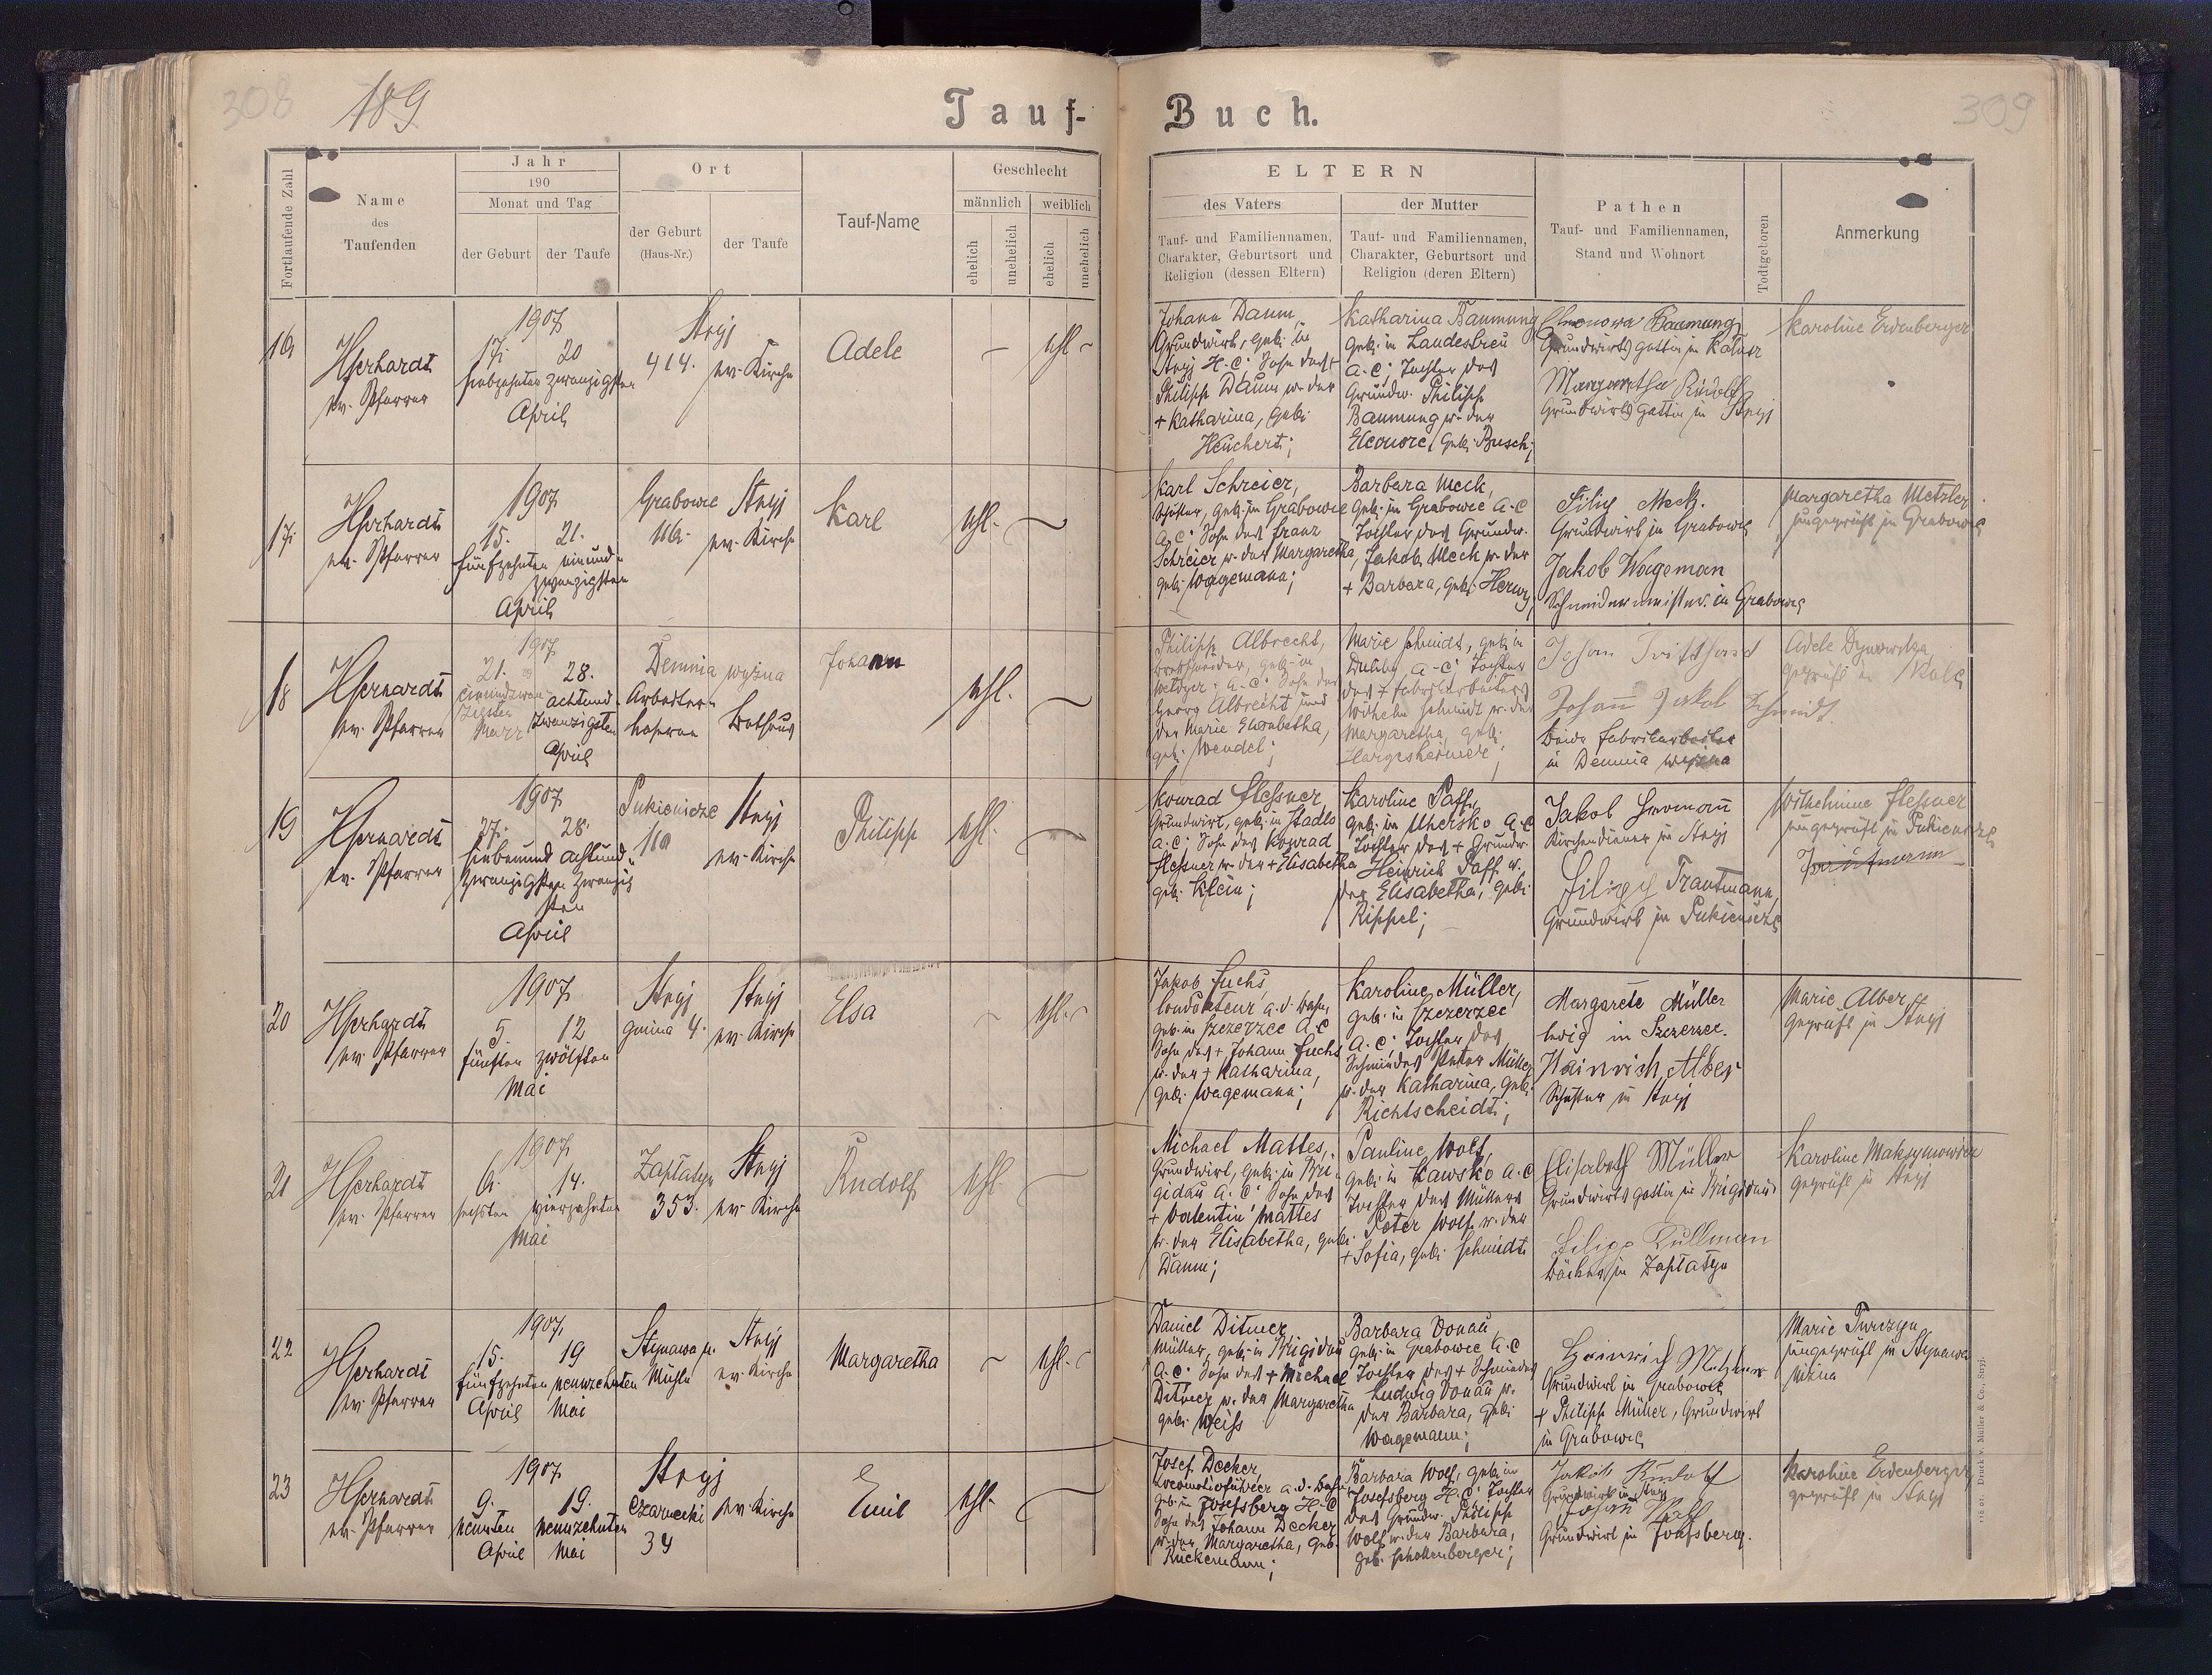 308
189
Tauf-
Buch.
309
Fortlaufende Zahl
Name
des
Taufenden
Jahr
190
Monat und Tag
der Geburt
der Taufe
Ort
der Geburt
(Haus-Nr.)
der Taufe
Tauf-Name
Geschlecht
männlich
weiblich
ehelich
unehelich
ehelich
unehelich
ELTERN
des Vaters
Tauf- und Familiennamen,
Charakter, Geburtsort und
Religion (dessen Eltern)
der Mutter
Tauf- und Familiennamen,
Charakter, Geburtsort und
Religion (deren Eltern)
Pathen
Tauf- und Familiennamen,
Stand und Wohnort
Todtgeboren
Anmerkung
16
ev. Pfarrer
1907
17.
siebzehnten
20
zwanzigsten
April
Stryj
414.
ev. Kirche
Adele
ehl
Johann Daum,
Grundwirt, geb. in
Stryj H.C; Sohn des
Philipp Daum u. der
+ Katharina, geb.
Heuchert;
Katharina Baumung
geb. in Landestreu
A.C; Tochter des
Grundw. Philipp
Baumung u. der
Eleonore, geb. Busch;
Eleonora Baumung
Grundwirts gattin in Kalusz
Margaretha Rudolf
Grundwirts gattin in Stryj
Karoline Erdenberger
17.
ev. Pfarrer
1907
15.
fünfzehnten
21.
einund-
zwanzigsten
April
Grabowce
116.
Stryj
ev. Kirche
Karl
ehl.
Karl Schreier,
geb. in Grabowce
A.C; Sohn des Franz
Schreier u. der Margaretha,
geb. Wagemann;
Barbara Meck,
geb. in Grabowce A.C
Tochter des Grundw.
Jakob Meck u. der
+ Barbara, geb. Herwy
Filip Meck.
Grundwirt in Grabowce
Jakob Wageman
Schneidermeister in Grabowce
Margaretha Metzler
ungeprüft in Grabowce
18
ev. Pfarrer
1907
21.
einundzwan-
zigsten
März
28.
achtund-
zwanzigsten
April
Demnia wyżna
Arbeiter-
Bethaus
Johann
ehl.
Philipp Albrecht,
geb. in
A.C; Sohn des
Georg Albrecht und
der Marie Elisabetha,
geb. Wendel;
Marie Schmidt, geb. in
A.C; Tochter
des + Fabrikarbeiters
Wilhelm Schmidt u. der
Margaretha, geb.
Hargesheimer;
Johann Jakob Schmidt
beide Fabrikarbeiter
in Demnia wyżna
Adele
geprüft in Skole
19
ev. Pfarrer
1907
27.
siebenund
zwanzigsten
28.
achtund-
zwanzig
sten
April
Pukienicze
Stryj
ev. Kirche
Philipp
ehl.
Konrad Flessner,
Grundwirt, geb. in Stadlo
A.C; Sohn des Konrad
Flessner u. der + Elisabetha
geb. Klein;
Karoline Paff,
geb. in Uhersko A.C
Tochter des + Grundw.
Heinrich Paff u.
der Elisabetha, geb.
Rippel;
Jakob Hermann
Kirchendiener in Stryj
Filipp Trautmann,
Grundwirt in Pukienicze
Wilhelmine Flessner
ungeprüft in Pukienicze
20
ev. Pfarrer
1907
5.
fünften
12
zwölften
Mai
Stryj
gmina 4.
Stryj
ev. Kirche
Elsa
ehl.
Jakob Fuchs,
Conducteur a.d. Bahn,
geb. in Szczerzec A.C
Sohn des + Johann Fuchs
u. der + Katharina,
geb. Wagemann;
Karoline Müller,
geb. in Szczerzec
A.C; Tochter des
Schmiedes Peter Müller
u. der Katharina, geb.
Richtscheidt;
Margarete Müller
ledig in Szczerzec.
Heinrich Alber
Schuster in Stryj
Marie Alber
geprüft in Stryj
21
ev. Pfarrer
1907
6.
sechsten
14.
vierzehnten
Mai
Zaplatyn
353.
Stryj
ev. Kirche
Rudolf
ehl.
Michael Mattes,
Grundwirt, geb. in Bri-
gidau A.C; Sohn des
+ Valentin Mattes
u. der Elisabetha, geb.
Daum;
Pauline Wolf,
geb. in Kawsko A.C
Tochter des Müllers
Peter Wolf u. der
+ Sofia, geb. Schmidt
Elisabeth Müller
Grundwirts gattin in Brigidau
Filipp Kullman
Bäcker in Zaplatyn
Karoline Maksymowicz
geprüft in Stryj
22
ev. Pfarrer
1907
15.
fünfzehnten
April
19
neunzehnten
Mai
Synawa n.
Mühle
Stryj
ev. Kirche
Margaretha
ehl.
Daniel Ditmer
Müller, geb. in Brigidau
A.C; Sohn des + Michael
Ditmer u. der Margaretha
geb. Weiss
Barbara Donau,
geb. in Grabowce A.C
Tochter des + Schmiedes
Ludwig Donau u.
der Barbara, geb.
Wagemann;
Heinrich Metzler
Grundwirt in Grabowce
+ Philipp Müller, Grundwirt
in Grabowce
Marie Turczyn
ungeprüft in Synawa
niżna
23
ev. Pfarrer
1907
9.
neunten
April
19.
neunzehnten
Mai
Stryj
Czarnecki
34
ev. Kirche
Emil
ehl.
Josef Decker,
Locomotivführer a.d. Bahn
geb. in Josefsberg H.C
Sohn des Johann Decker
u. der Margaretha, geb.
Rückemann;
Barbara Wolf, geb. in
Josefsberg H.C; Tochter
des Grundw. Philipp
Wolf u. der Barbara,
geb. Schollenberger;
Jakob Rudolf
Grundwirt in Stryj
Grundwirt in Josefsberg.
Karoline Erdenberger
geprüft in Stryj
Druck v. Müller & Co., Stryj.